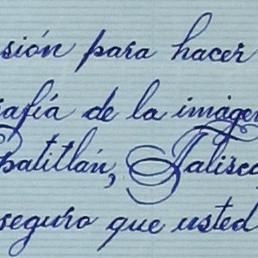 sión para hacer
rafía de la imagen
patitlán, Jalisco,
seguro que usted